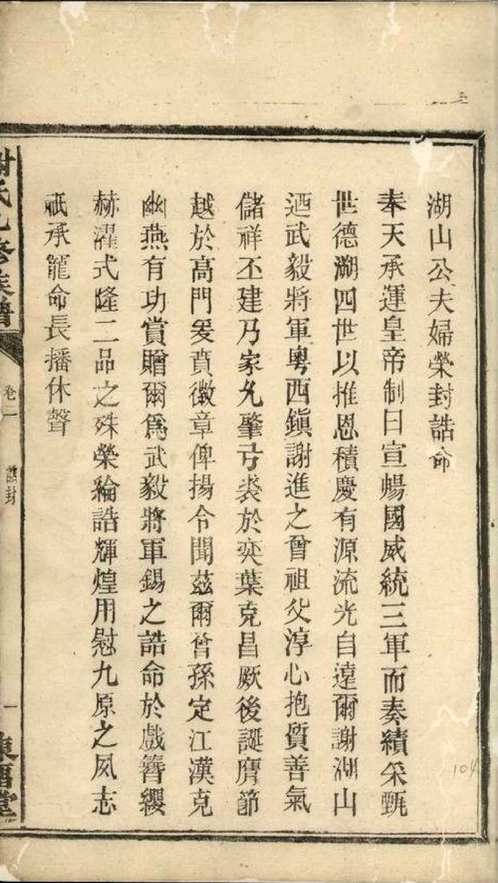 湖山公夫婦榮封誥命
奉天承運皇帝制曰宣暢國威統三軍而奏績采甄
世德溯四世以推恩積慶有源流光自遠爾謝湖山
迺武毅將軍粵西鎮謝進之曾祖父淳心抱質善氣
儲祥丕建乃家允肇弓裘於奕葉克昌厥後誕膺節
越於高門爰賁徽章俾揚令聞茲爾曾孫定江漢克
幽燕有功賞贈爾為武毅將軍錫之誥命於戲簪纓
赫濯式隆二品之殊榮綸誥輝煌用慰九原之夙志
祇承寵命長播休聲
謝氏 修族譜
卷一
誥封
一
104